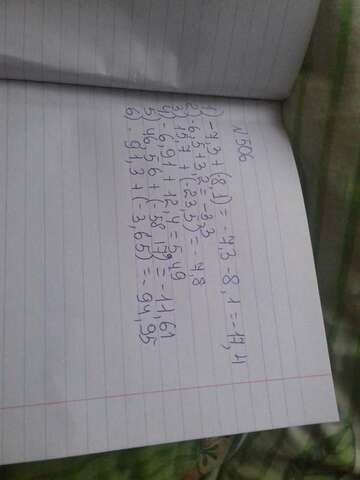 N 506
1) -9,3 + (8,1) = -9,3 - 8,1 = -17,4
2) -6,5 + 3,2 = -3,3
3) 18,7 + (-23,5) = -4,8
4) -6,91 + 12,4 = 5,49
5) 46,56 + (-58,17) = -11,61
6) -91,3 + (-3,65) = -94,95